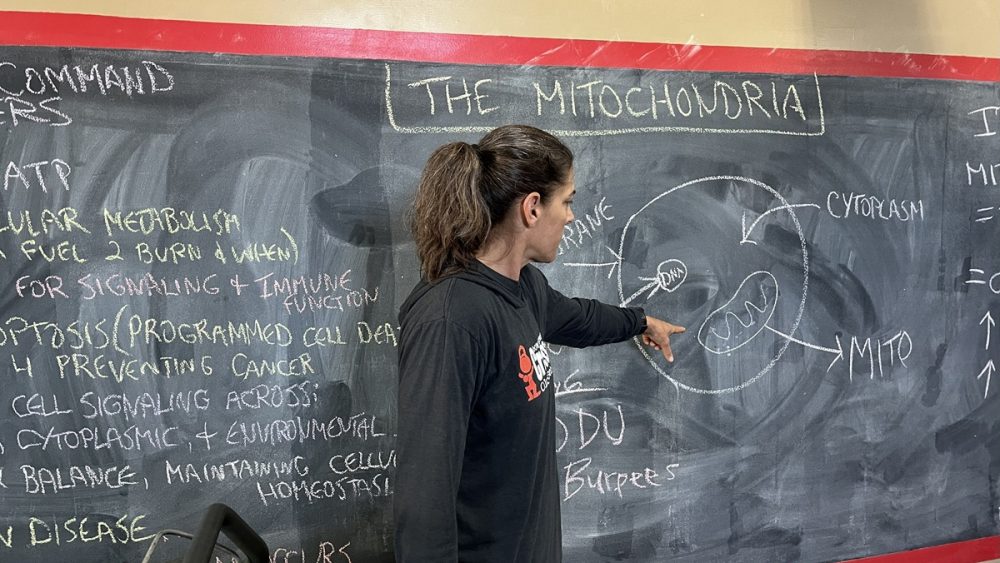 COMMAND
ERS
ATP
ULAR METABOLISM
FUEL 2 BURN & WHEN)
FOR SIGNALING + IMMUNE
FUNCTION
OPTOSIS (PROGRAMMED CELL DEA
4 PREVENTING CANCER
CELL SIGNALING ACROSS:
, CYTOPLASMIC, + ENVIRONMENTAL
BALANCE, MAINTAINING CELLU
HOMEOSTAS
N DISEASE
CCURS
THE MITOCHONDRIA
BRANE
DNA
CYTOPLASM
MITO
DU
Burpees
MIT